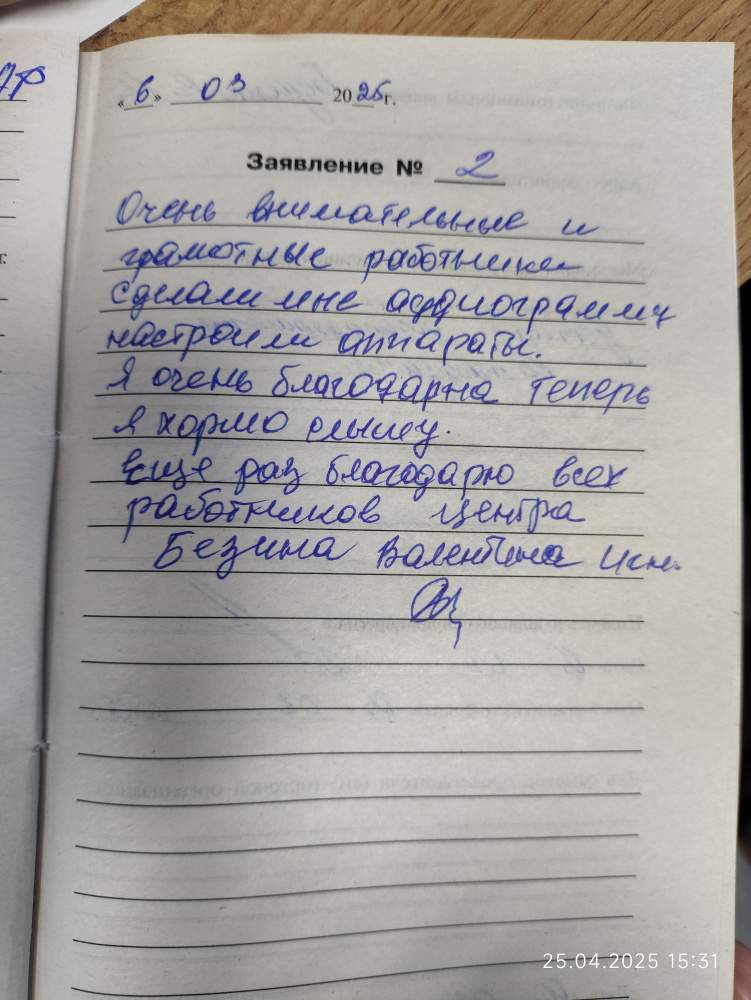 «6» 03 2025 г.
Заявление № 2
Очень внимательные и
грамотные работники
сделали мне аудиограмму
настроили аппараты.
Я очень благодарна теперь
я хормо слышу.
Еще раз благодарю всех
работников центра
Безина Валентина
25.04.2025 15:31